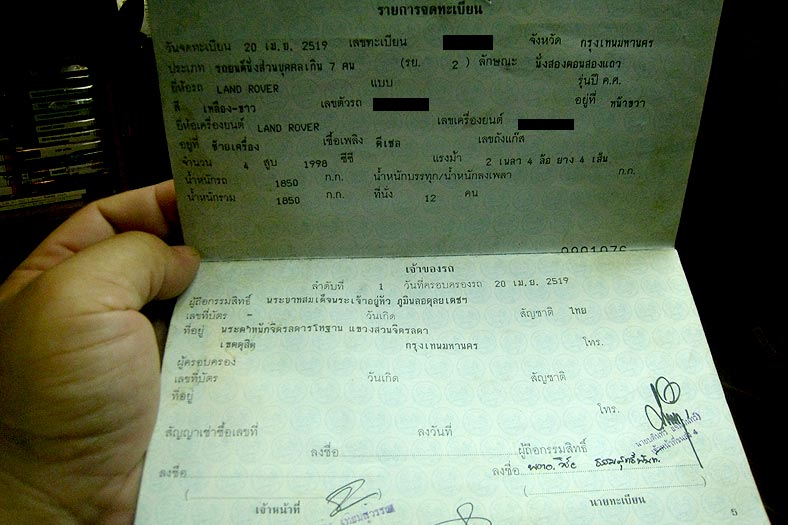 รายการจดทะเบียน
วันจดทะเบียน 20 เม.ย. 2519 เลขทะเบียน จังหวัด กรุงเทพมหานคร
ประเภท รถยนต์นั่งส่วนบุคคลเกิน 7 คน (รย. 2 ) ลักษณะ นั่งสองตอนสองแถว
ยี่ห้อรถ LAND ROVER แบบ รุ่นปี ค.ศ.
สี เหลือง-ขาว เลขตัวรถ อยู่ที่ หน้าขวา
ยี่ห้อเครื่องยนต์ LAND ROVER เลขเครื่องยนต์
อยู่ที่ ซ้ายเครื่อง เชื้อเพลิง ดีเซล เลขถังแก๊ส
จำนวน 4 สูบ 1998 ซีซี แรงม้า 2 เพลา 4 ล้อ ยาง 4 เส้น
น้ำหนักรถ 1850 ก.ก. น้ำหนักบรรทุก/น้ำหนักลงเพลา ก.ก.
น้ำหนักรวม 1850 ก.ก. ที่นั่ง 12 คน
เจ้าของรถ
ลำดับที่ 1 วันที่ครอบครองรถ 20 เม.ย. 2519
ผู้ถือกรรมสิทธิ์ พระบาทสมเด็จพระเจ้าอยู่หัว ภูมิพลอดุลยเดชฯ
เลขที่บัตร - วันเกิด สัญชาติ ไทย
ที่อยู่ พระตำหนักจิตรลดารโหฐาน แขวงสวนจิตรลดา
เขตดุสิต กรุงเทพมหานคร โทร.
ผู้ครอบครอง
เลขที่บัตร วันเกิด สัญชาติ
ที่อยู่
โทร.
สัญญาเช่าซื้อเลขที่ ลงวันที่
ลงชื่อ ผู้ถือกรรมสิทธิ์
ลงชื่อ ลงชื่อ
เจ้าหน้าที่ นายทะเบียน
5